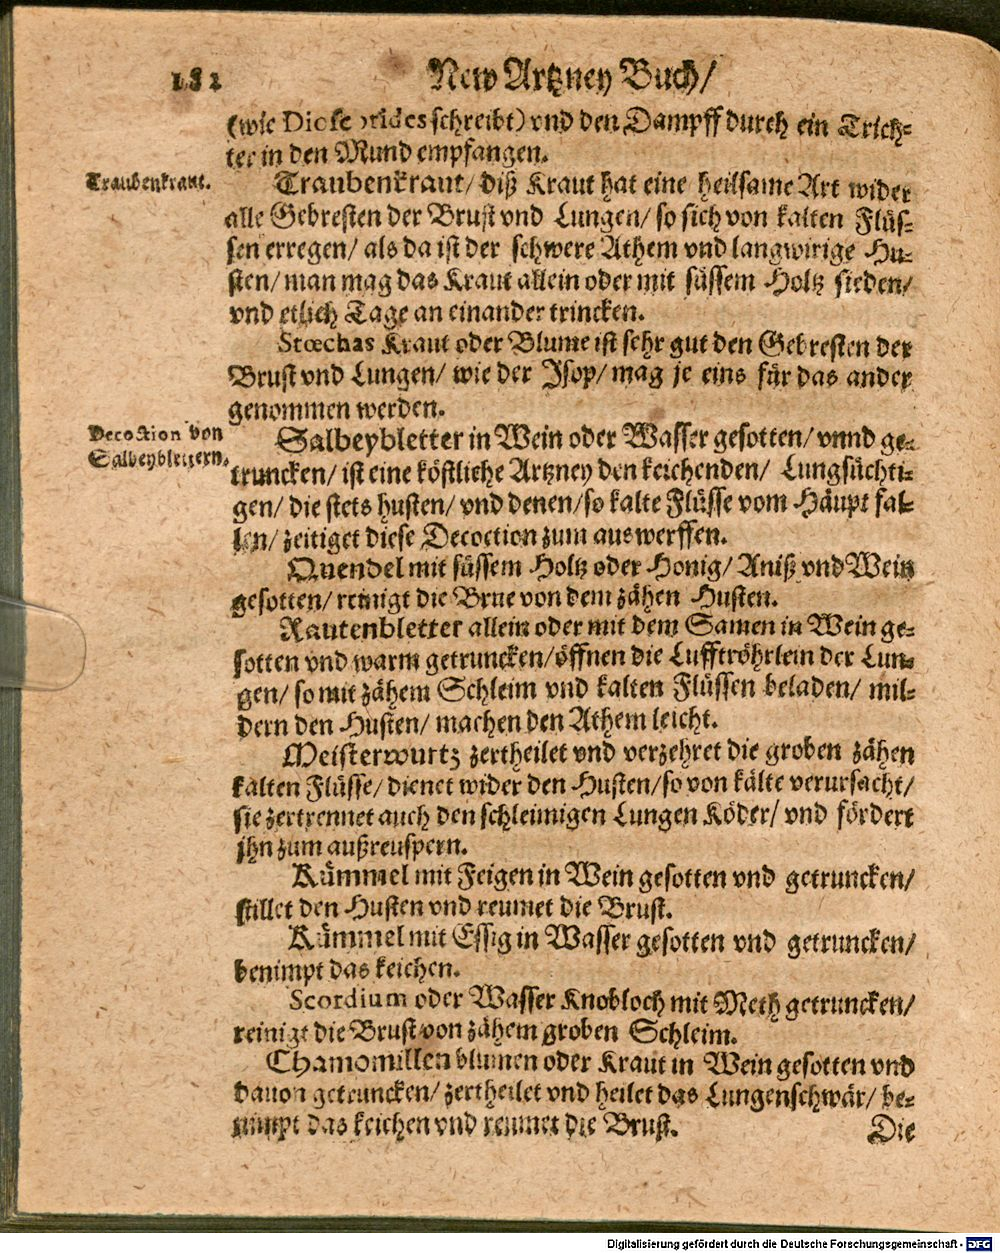 182 New Artzney Buch/
(wie Dioscorides schreibt) vnd den Dampff durch ein Trich-
ter in den Mund empfangen.
Traubenkraut.
Traubenkraut/ diß Kraut hat eine heilsame Art wider
alle Gebresten der Brust vnd Lungen/ so sich von kalten Flüs-
sen erregen/ als da ist der schwere Athem vnd langwirige Hu-
sten/ man mag das Kraut allein oder mit süssem Holtz sieden/
vnd etlich Tage an einander trincken.
Stœchas Kraut oder Blume ist sehr gut den Gebresten der
Brust vnd Lungen/ wie der Jsop/ mag je eins für das ander
genommen werden.
Decoction von
Salbeyblettern.
Salbeybletter in Wein oder Wasser gesotten/ vnnd ge-
truncken/ ist eine köstliche Artzney den keichenden/ Lungsüchti-
gen/ die stets husten/ vnd denen/ so kalte Flüsse vom Häupt fal-
len/ zeitiget diese Decoction zum auswerffen.
Quendel mit süssem Holtz oder Honig/ Aniß vnd Wein
gesotten/ reinigt die Brue von dem zähen Husten.
Rautenbletter allein oder mit dem Samen in Wein ge-
sotten vnd warm getruncken/ öffnen die Lufftröhrlein der Lun-
gen/ so mit zähem Schleim vnd kalten Flüssen beladen/ mil-
dern den Husten/ machen den Athem leicht.
Meisterwurtz zertheilet vnd verzehret die groben zähen
kalten Flüsse/ dienet wider den Husten/ so von kälte verursacht/
sie zertrennet auch den schleimigen Lungen Köder/ vnd fördert
jhn zum außreuspern.
Kümmel mit Feigen in Wein gesotten vnd getruncken/
stillet den Husten vnd reumet die Brust.
Kümmel mit Essig in Wasser gesotten vnd getruncken/
benimpt das keichen.
Scordium oder Wasser Knobloch mit Meth getruncken/
reinigt die Brust von zähem groben Schleim.
Chamomillen blumen oder Kraut in Wein gesotten vnd
dauon getruncken/ zertheilet vnd heilet das Lungenschwär/ be-
nimpt das keichen vnd reumet die Brust.
Die
Digitalisierung gefördert durch die Deutsche Forschungsgemeinschaft - DFG